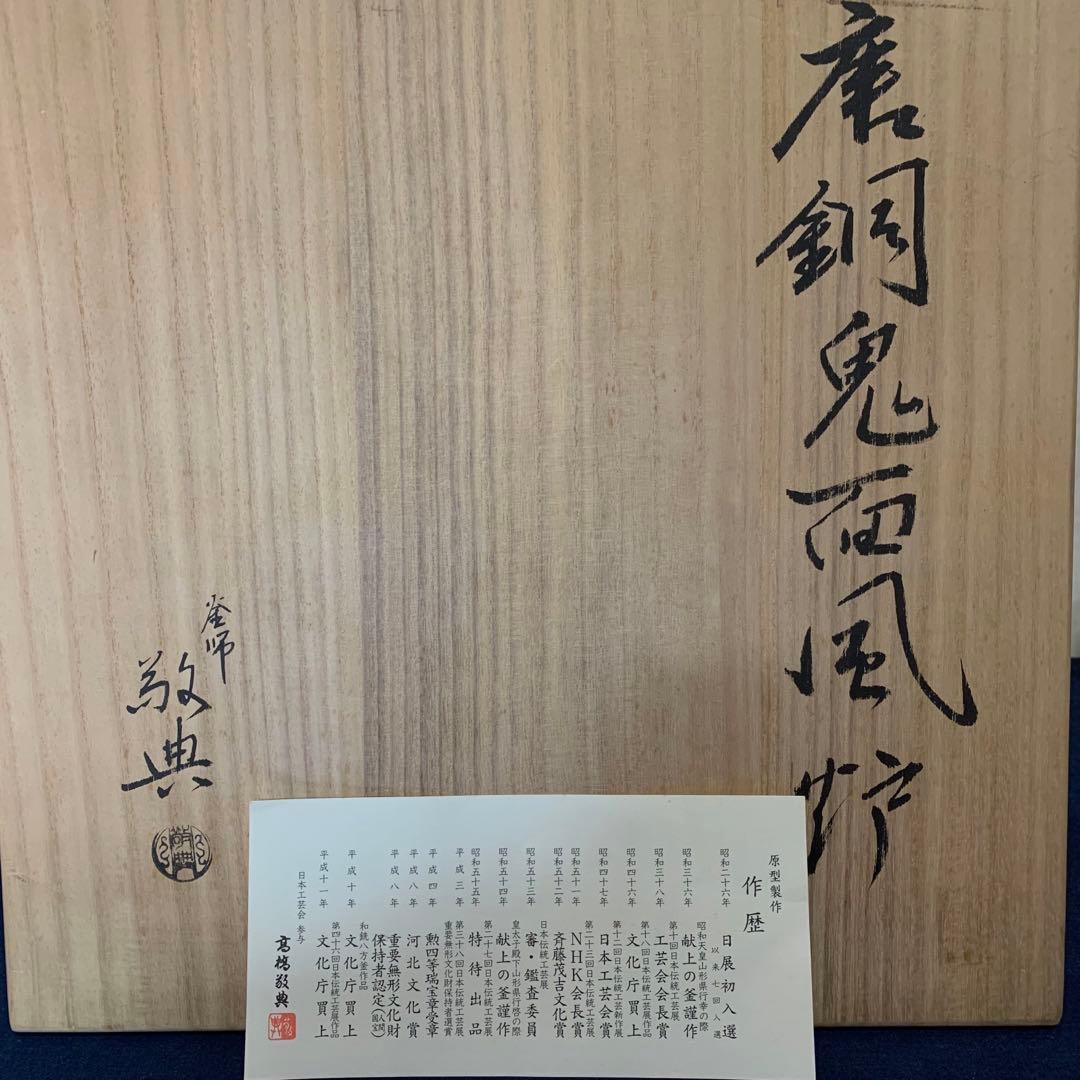 唐銅鬼面風炉
釜師
敬典
敬典
原型製作
作歴
昭和二十六年
日展初入選
以来七回入選
昭和三十六年
昭和天皇山形県行幸の際
献上の釜謹作
昭和三十八年
第十回日本伝統工芸展
工芸会会長賞
昭和四十六年
第十八回日本伝統工芸展作品
文化庁買上
昭和四十七年
第十二回日本伝統工芸新作展
日本工芸会賞
昭和五十一年
第二十三回日本伝統工芸展
NHK会長賞
昭和五十二年
斉藤茂吉文化賞
昭和五十三年
日本伝統工芸展
審・鑑査委員
昭和五十四年
皇太子殿下山形県行啓の際
献上の釜謹作
昭和五十五年
第二十七回日本伝統工芸展
特待出品
平成三年
第三十八回日本伝統工芸展
重要無形文化財保持者選賞
平成四年
勲四等瑞宝章受章
平成八年
河北文化賞
平成八年
重要無形文化財
保持者認定(人間国宝)
平成十年
和銑八方釜作品
文化庁買上
平成十一年
第四十六回日本伝統工芸展作品
文化庁買上
日本工芸会 参与
高橋敬典